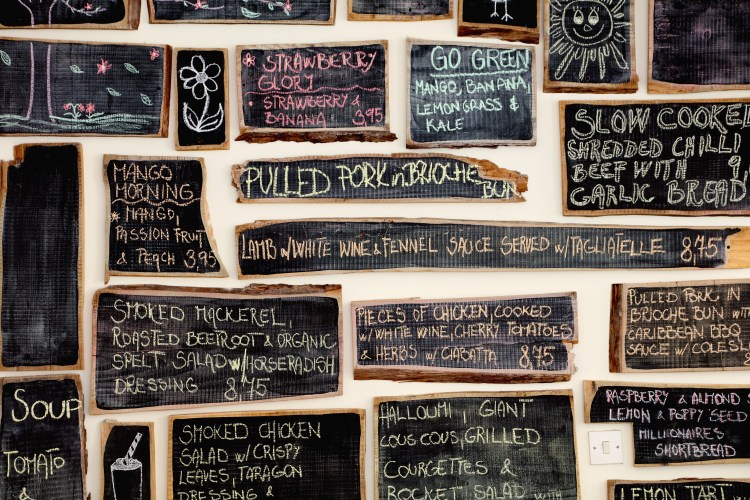 * STRAWBERRY
GLORY
• STRAWBERRY &
BANANA 3,95
GO GREEN
MANGO, BANANA,
LEMONGRASS &
KALE
SLOW COOKED
SHREDDED CHILLI
BEEF WITH 9,
GARLIC BREAD
MANGO
MORNING
* MANGO,
PASSION FRUIT
& PEACH 3,95
PULLED PORK in BRIOCHE
BUN
LAMB w/WHITE WINE & FENNEL SAUCE SERVED w/TAGLIATELLE 8,75
SMOKED MACKEREL,
ROASTED BEETROOT & ORGANIC
SPELT SALAD w/HORSERADISH
DRESSING 8,75
PIECES OF CHICKEN, COOKED
w/WHITE WINE, CHERRY TOMATOES
& HERBS w/ CIABATTA 8,75
PULLED PORK IN
BRIOCHE BUN WITH
CARIBBEAN BBQ
SAUCE w/ COLESL
SOUP
TOMATO
&
SMOKED CHICKEN
SALAD w/ CRISPY
LEAVES, TARAGON
DRESSING &
HALLOUMI, GIANT
COUS COUS, GRILLED
COURGETTES &
ROCKET SALAD WITH
RASPBERRY & ALMOND S
LEMON & POPPY SEED
MILLIONAIRES
SHORTBREAD
LEMON TART